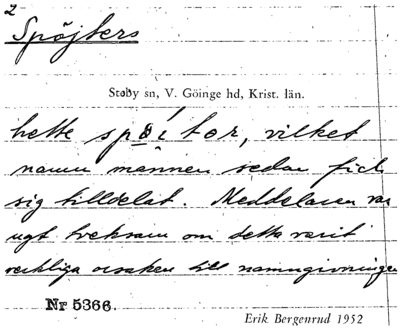 2
Spöjters
Stoby sn, V. Göinge hd, Krist. län.
hette spöitor, vilket
namn mannen sedan fick
sig tilldelat. Meddelaren var
ngt tveksam om detta varit
verkliga orsaken till namngivningen
Nr 5366.
Erik Bergenrud 1952